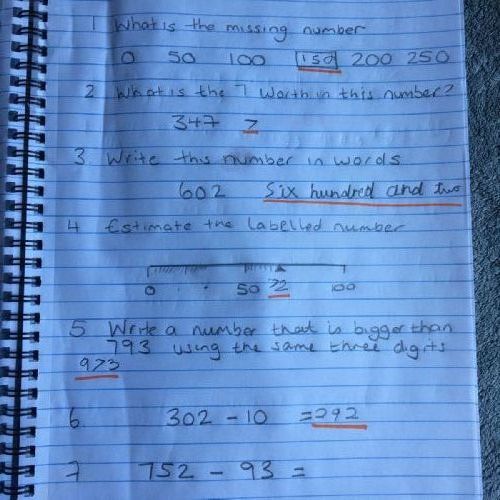 1 What is the missing number
0 50 100 150 200 250
2 What is the 7 worth in this number?
347 7
3 Write this number in words
602 Six hundred and two
4 Estimate the labelled number
0 50 72 100
5 Write a number that is bigger than
793 using the same three digits
973
6 302 - 10 = 292
7 752 - 93 =